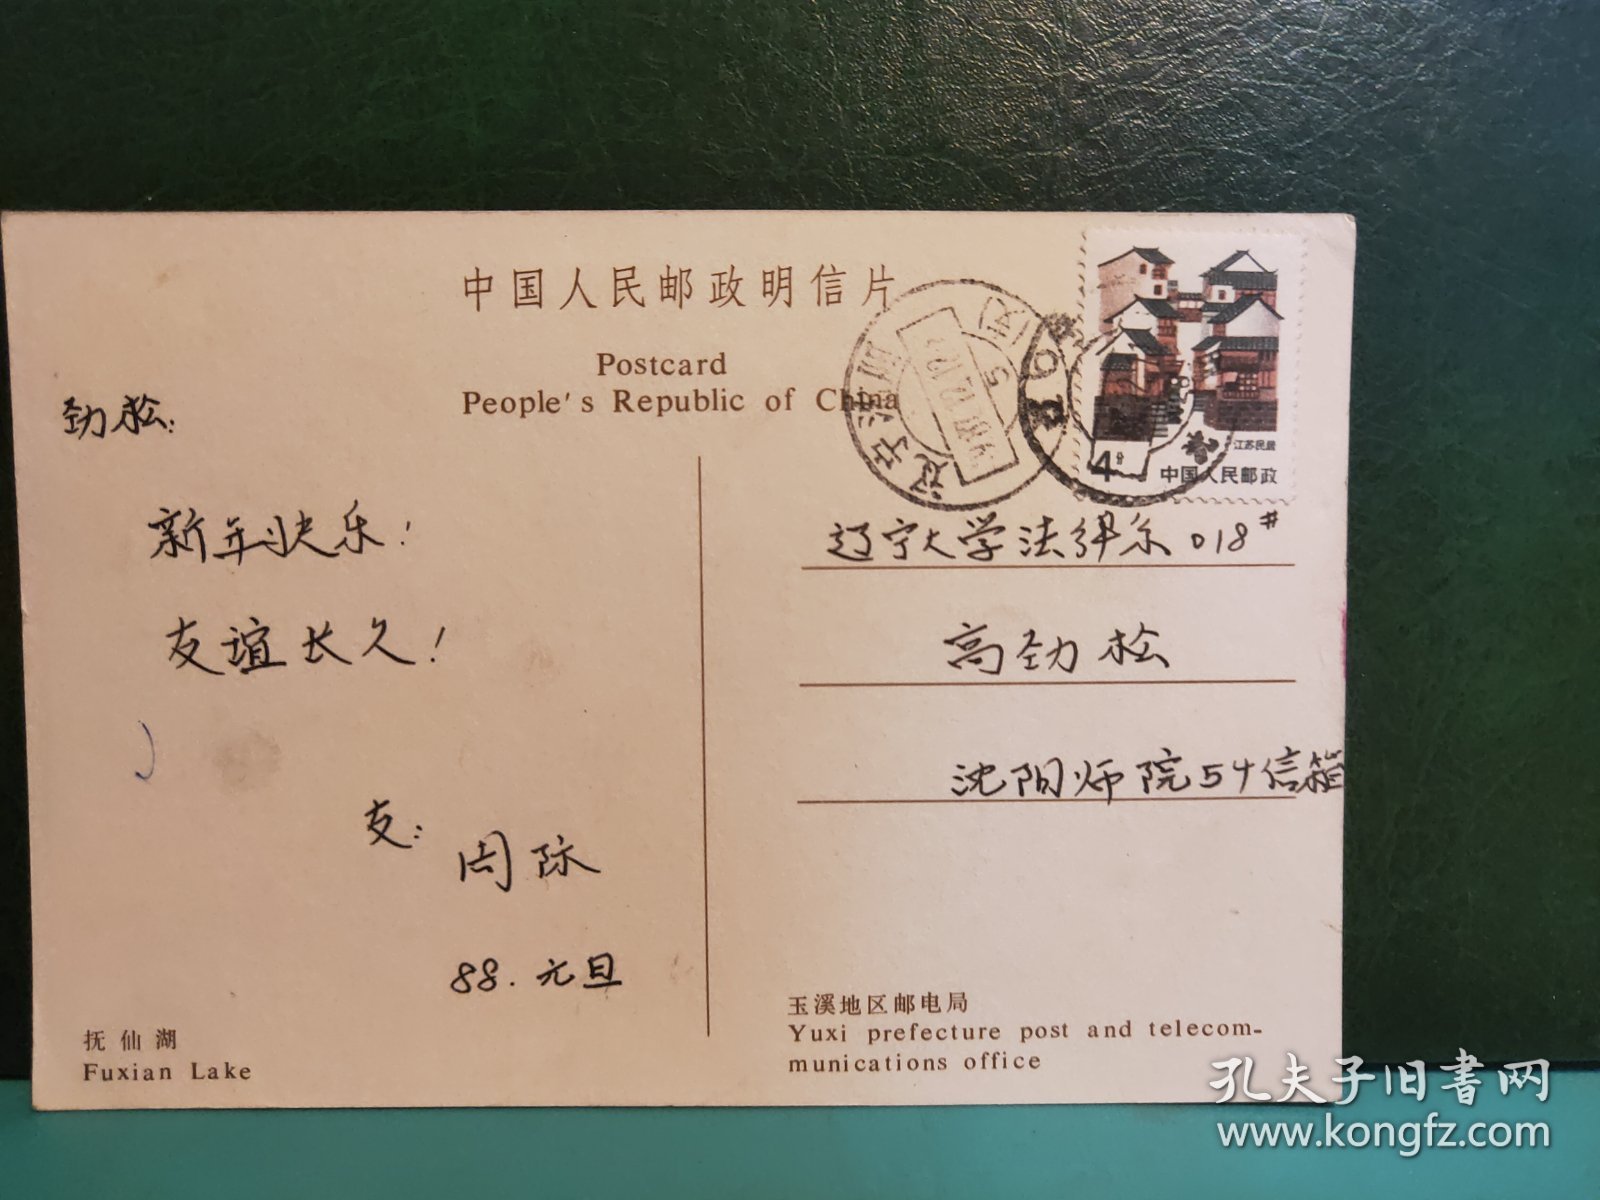 中国人民邮政明信片
Postcard
People's Republic of China
劲松:
新年快乐!
友谊长久!
友:
周际
88.元旦
抚仙湖
Fuxian Lake
江苏民居
4分
中国人民邮政
辽宁沈阳
1987.12.
5
辽宁大学法律系018#
高劲松
沈阳师院54信箱
玉溪地区邮电局
Yuxi prefecture post and telecom-
munications office
孔夫子旧书网
www.kongfz.com